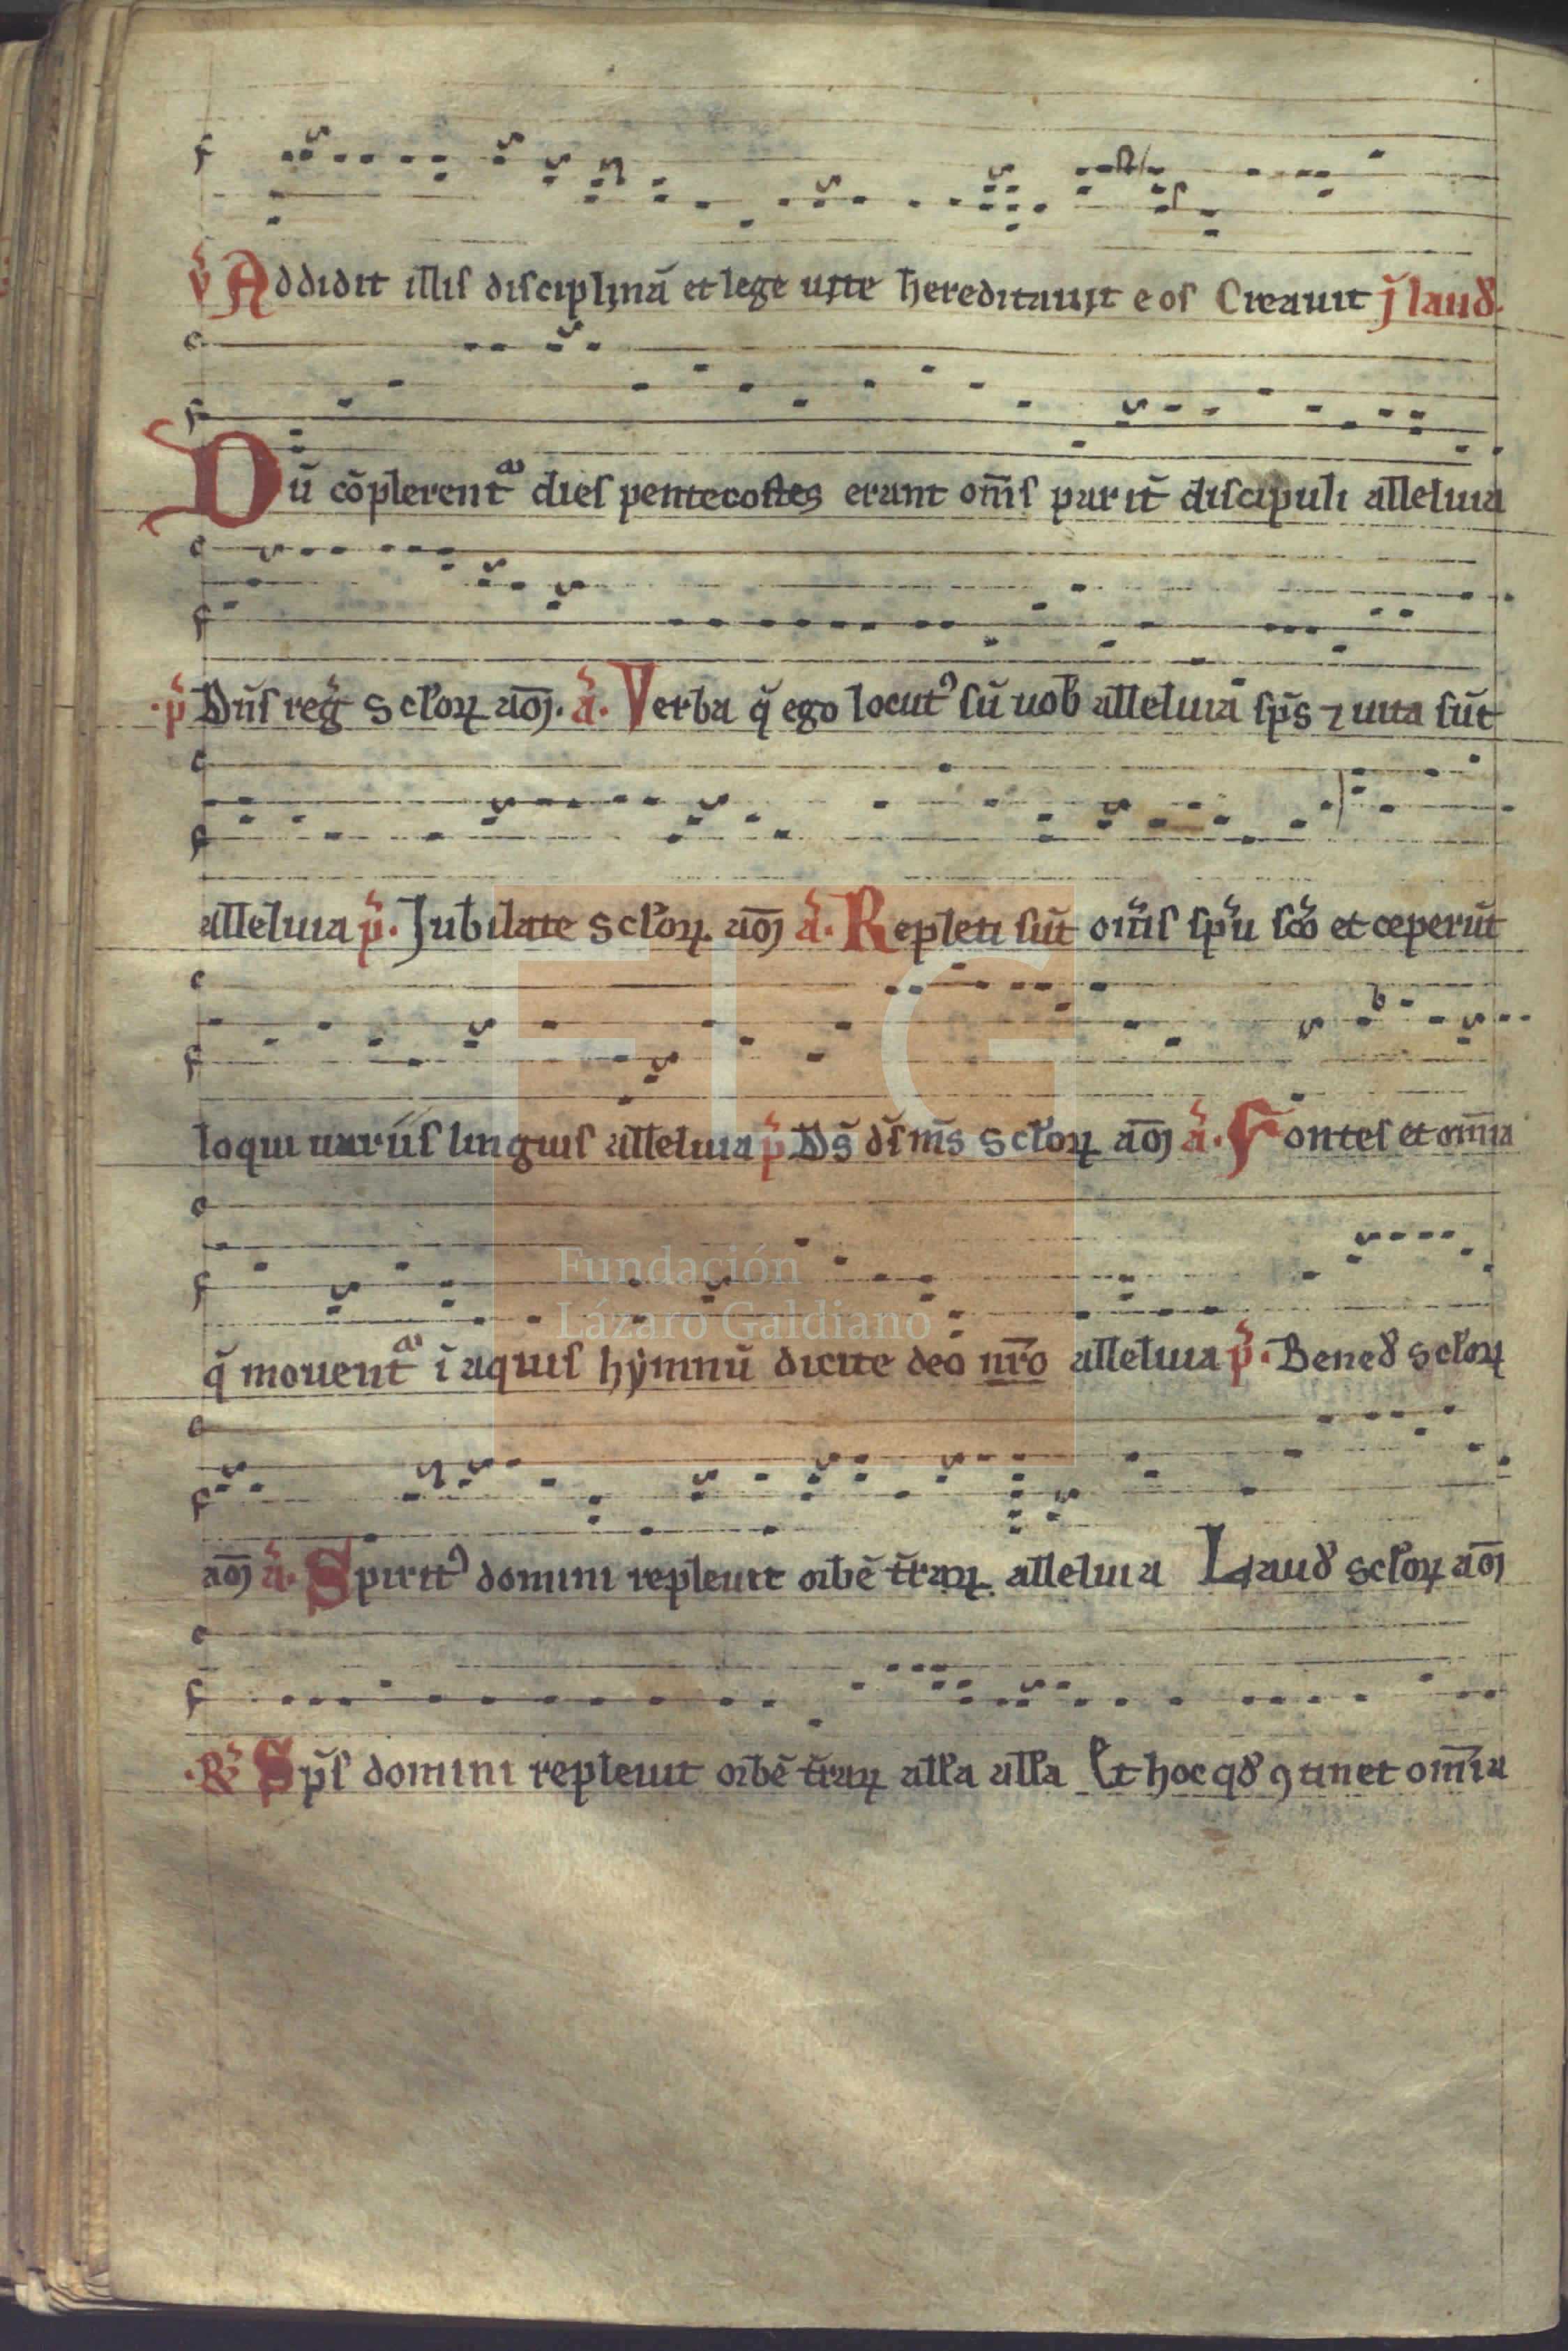 v̄ Addidit illis disciplinā et lege uite hereditauit eos Creauit J̄ laud̄.
Dū cōplerent᷑ dies pentecostes erant om̄s parit̄ discipuli alleluia
·p̄ Dn̄s reḡ sclōꝝ am̄. ā. Verba q̄ ego locutꝰ sū uob̄ alleluia sp̄s ⁊ uita sūt
alleluia p̄. Jubilate sclōꝝ. am̄ ā. Repleti sūt om̄s sp̄u sc̄o et ceperūt
loqui uariis linguis alleluia p̄ Ds̄ ds̄ ms̄ sclōꝝ am̄ ā. Fontes et om̄ia
q̄ mouent᷑ ī aquis hẏmnū dicite deo nr̄o alleluia p̄. Bened̄ sclōꝝ
am̄ ā. Spiritꝰ domini repleuit orbē tr̄aꝝ. alleluia Laud̄ sclōꝝ am̄
·R̄ Sp̄s domini repleuit orbē tr̄aꝝ all̄a all̄a Et hoc qd̄ ꝯtinet om̄ia
FLG
Fundación
Lázaro Galdiano